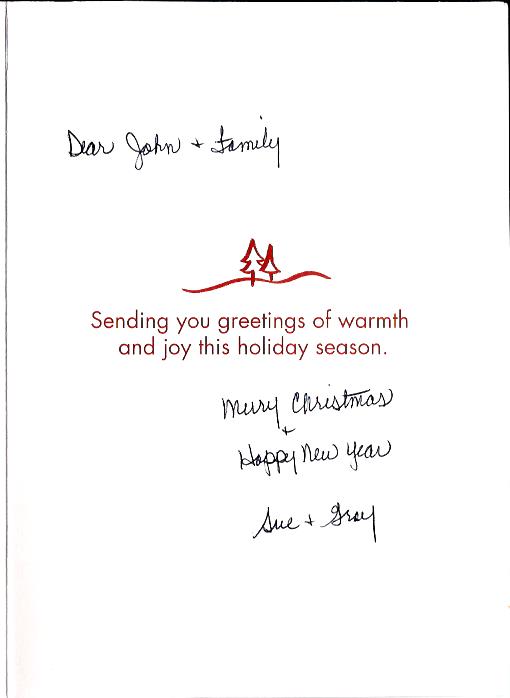 Dear John + Family
Sending you greetings of warmth
and joy this holiday season.
Merry Christmas
+
Happy New Year
Sue + Gray